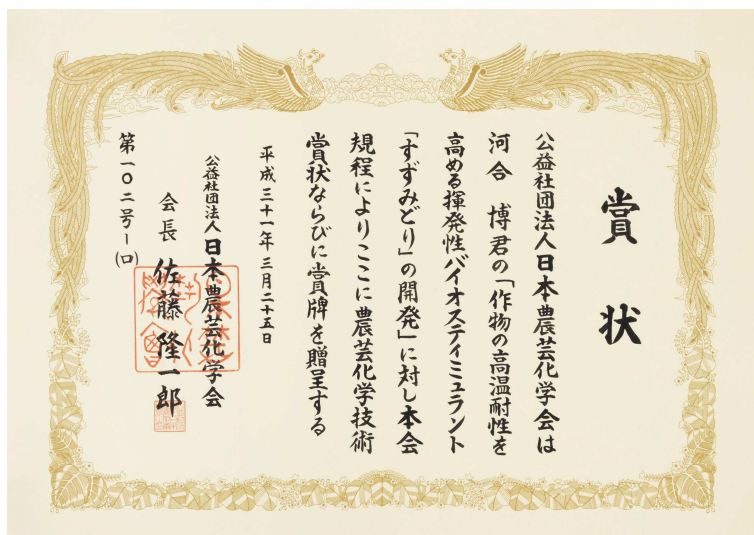 賞状
公益社団法人日本農芸化学会は
河合 博君の「作物の高温耐性を
高める揮発性バイオスティミュラント
「すずみどり」の開発」に対し本会
規程によりここに農芸化学技術
賞状ならびに賞牌を贈呈する
平成三十一年三月二十五日
公益社団法人日本農芸化学会
会長 佐藤隆一郎
第一〇二号ー(ロ)